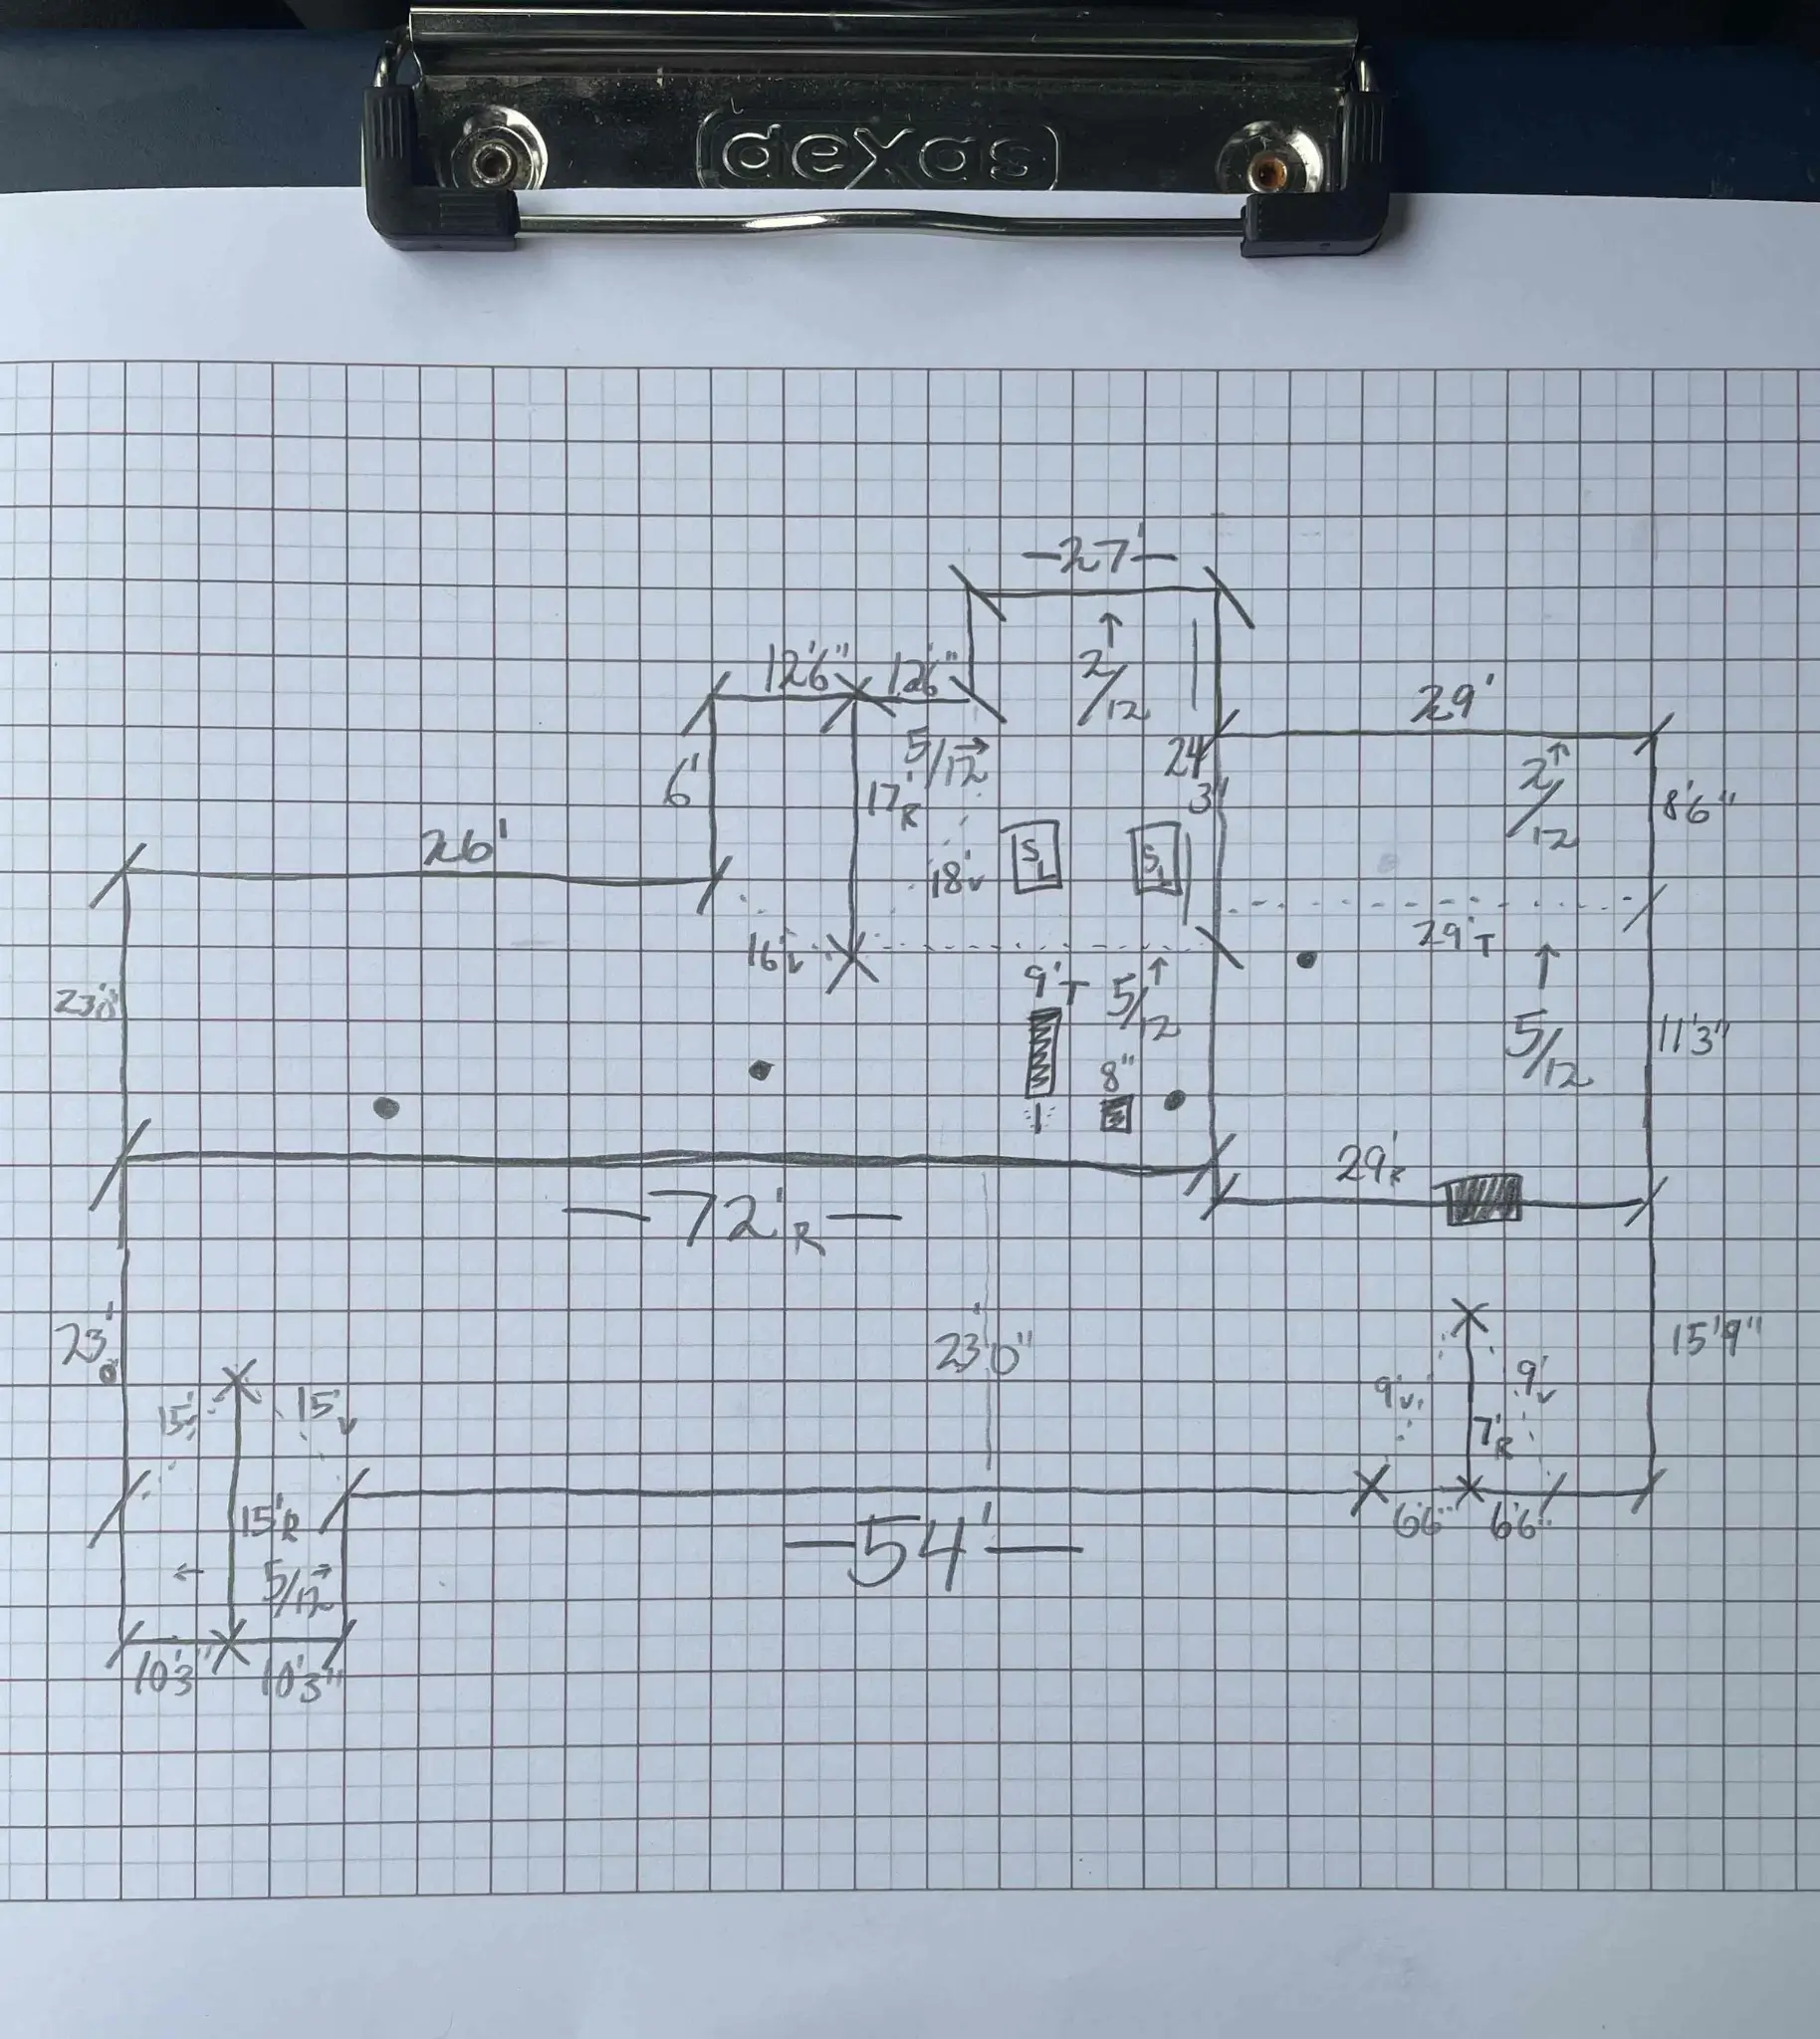 dexas
-27'-
12'6" 12'6"
2/12
29'
5/12
6'
17'R
24'
3"
2/12
8'6"
26'
18'v
SL
SL
29'T
16'v
9'T
5/12
23'0"
5/12
11'3"
8"
29'R
-72'R-
23'0"
23'0"
15'9"
15'v
15'v
9'v
9'v
7'R
15'R
6'6" 6'6"
-54'-
5/12
10'3" 10'3"